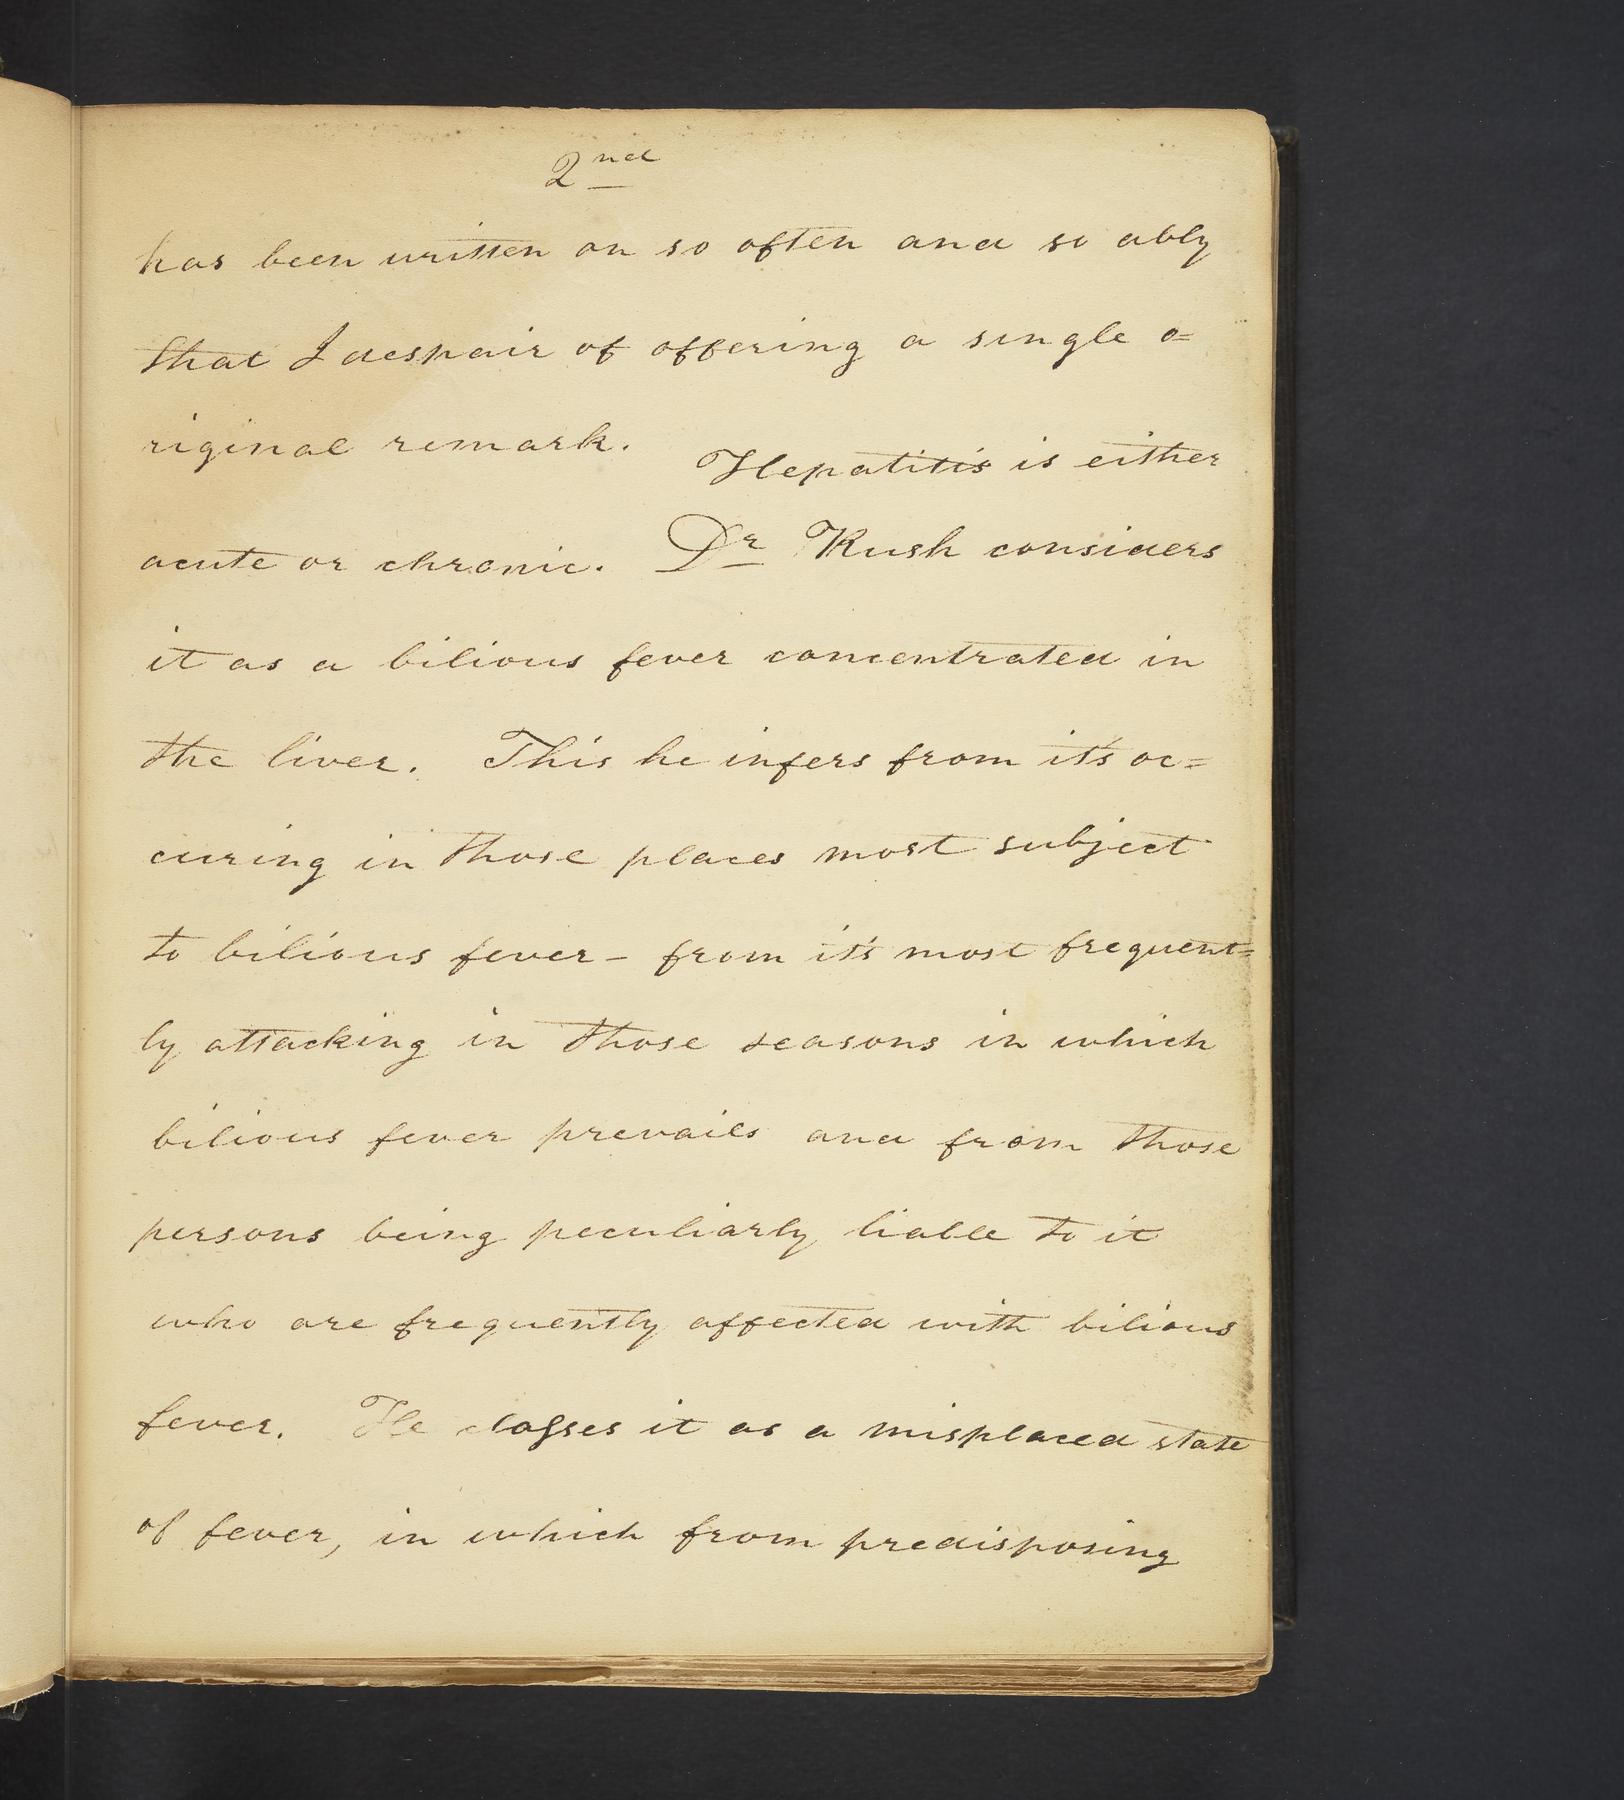 2nd
has been written on so often and so ably
that I despair of offering a single o=
riginal remark. Hepatitis is either
acute or chronic. Dr Rush considers
it as a bilious fever concentrated in
the liver. This he infers from it's oc=
curing in those places most subject
to bilious fever - from it's most frequent=
ly attacking in those seasons in which
bilious fever prevails and from those
persons being peculiarly liable to it
who are frequently affected with bilious
fever. He classes it as a misplaced state
of fever, in which from predisposing